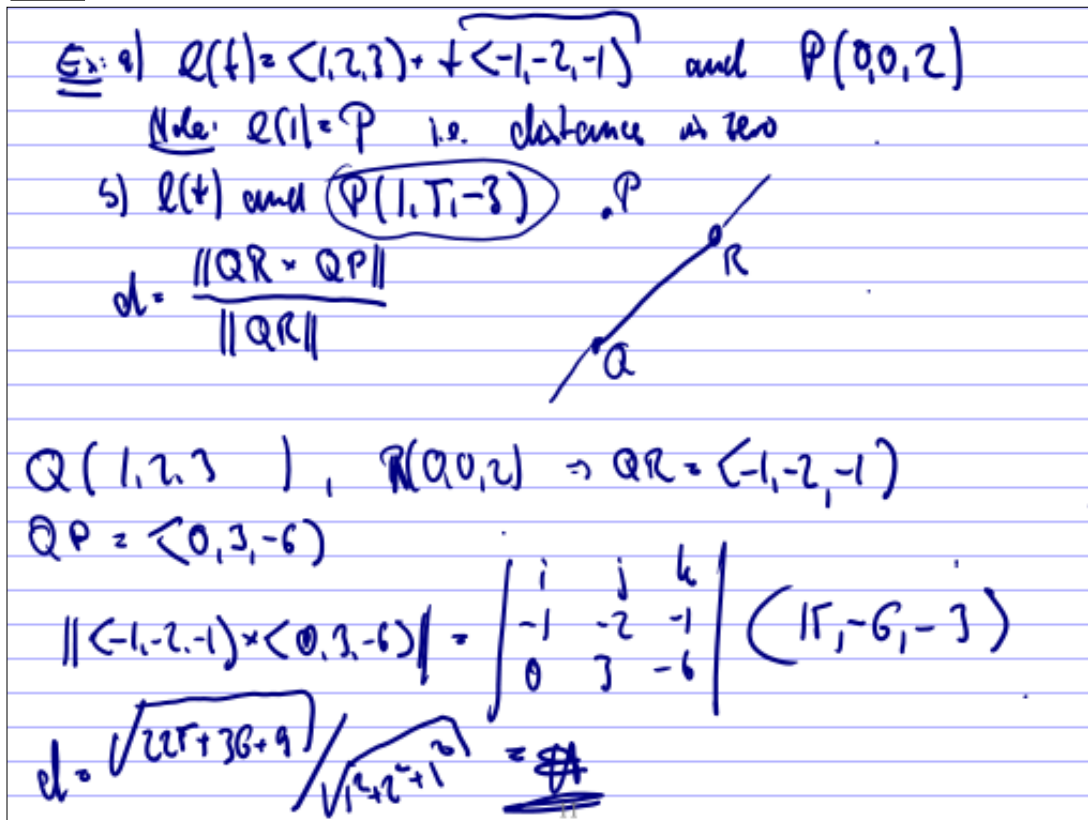 Ex: a) l(t) = <1,2,3> + t<-1,-2,-1> and P(0,0,2)
Note: l(1) = P i.e. distance is zero
b) l(t) and P(1,5,-3) .P
R
d = ||QR × QP|| / ||QR||
Q
Q(1,2,3 ), R(0,0,2) ⇒ QR = <-1,-2,-1>
QP = <0,3,-6>
||<-1,-2,-1> × <0,3,-6>|| = | i j k
-1 -2 -1
0 3 -6 | (15,-6,-3)
d = √225+36+9 / √1²+2²+1² =
11